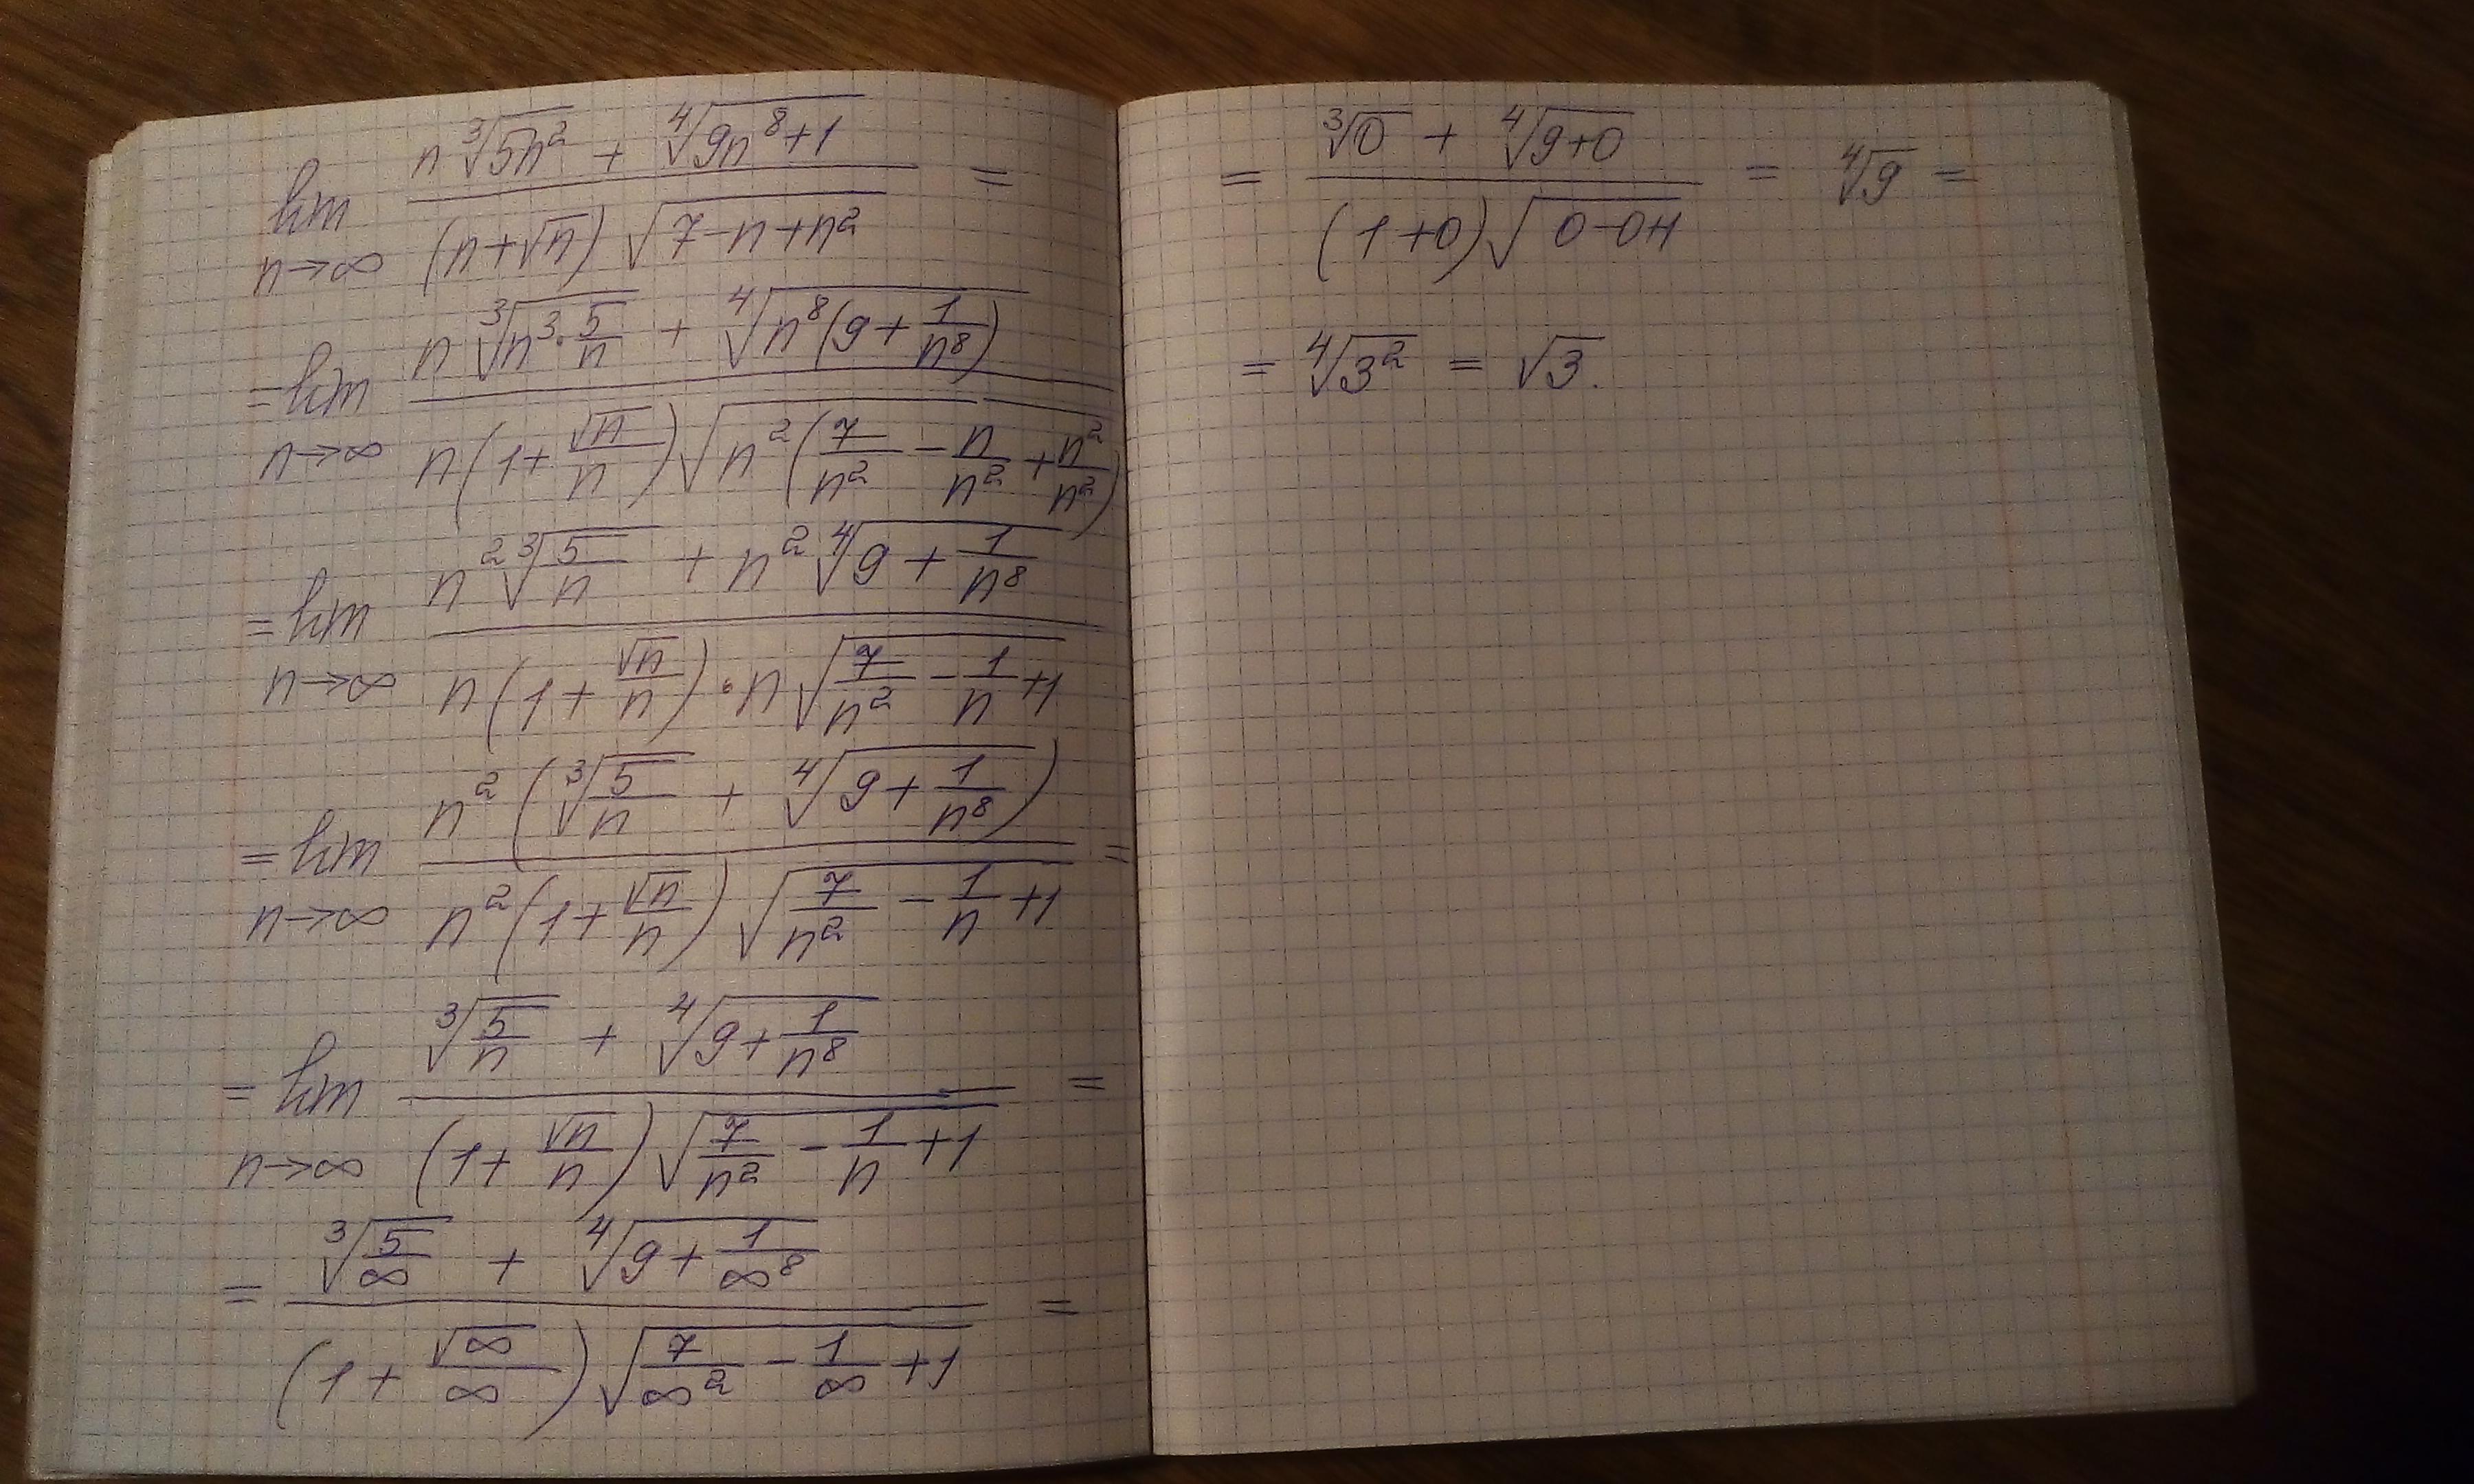 lim n→∞ (n∛(5n²) + ∜(9n⁸+1)) / ((n+√n)√(7-n+n²)) =
= lim n→∞ (n∛(n³·5/n) + ∜(n⁸(9+1/n⁸))) / (n(1+√n/n)√(n²(7/n² - n/n² + n²/n²)))
= lim n→∞ (n²∛(5/n) + n²∜(9+1/n⁸)) / (n(1+√n/n)·n√(7/n² - 1/n +1))
= lim n→∞ (n²(∛(5/n) + ∜(9+1/n⁸))) / (n²(1+√n/n)√(7/n² - 1/n +1)) =
= lim n→∞ (∛(5/n) + ∜(9+1/n⁸)) / ((1+√n/n)√(7/n² - 1/n +1)) =
= (∛(5/∞) + ∜(9+1/∞⁸)) / ((1+√∞/∞)√(7/∞² - 1/∞ +1)) =
= (∛0 + ∜(9+0)) / ((1+0)√(0-0+1)) = ∜9 =
= ∜(3²) = √3.